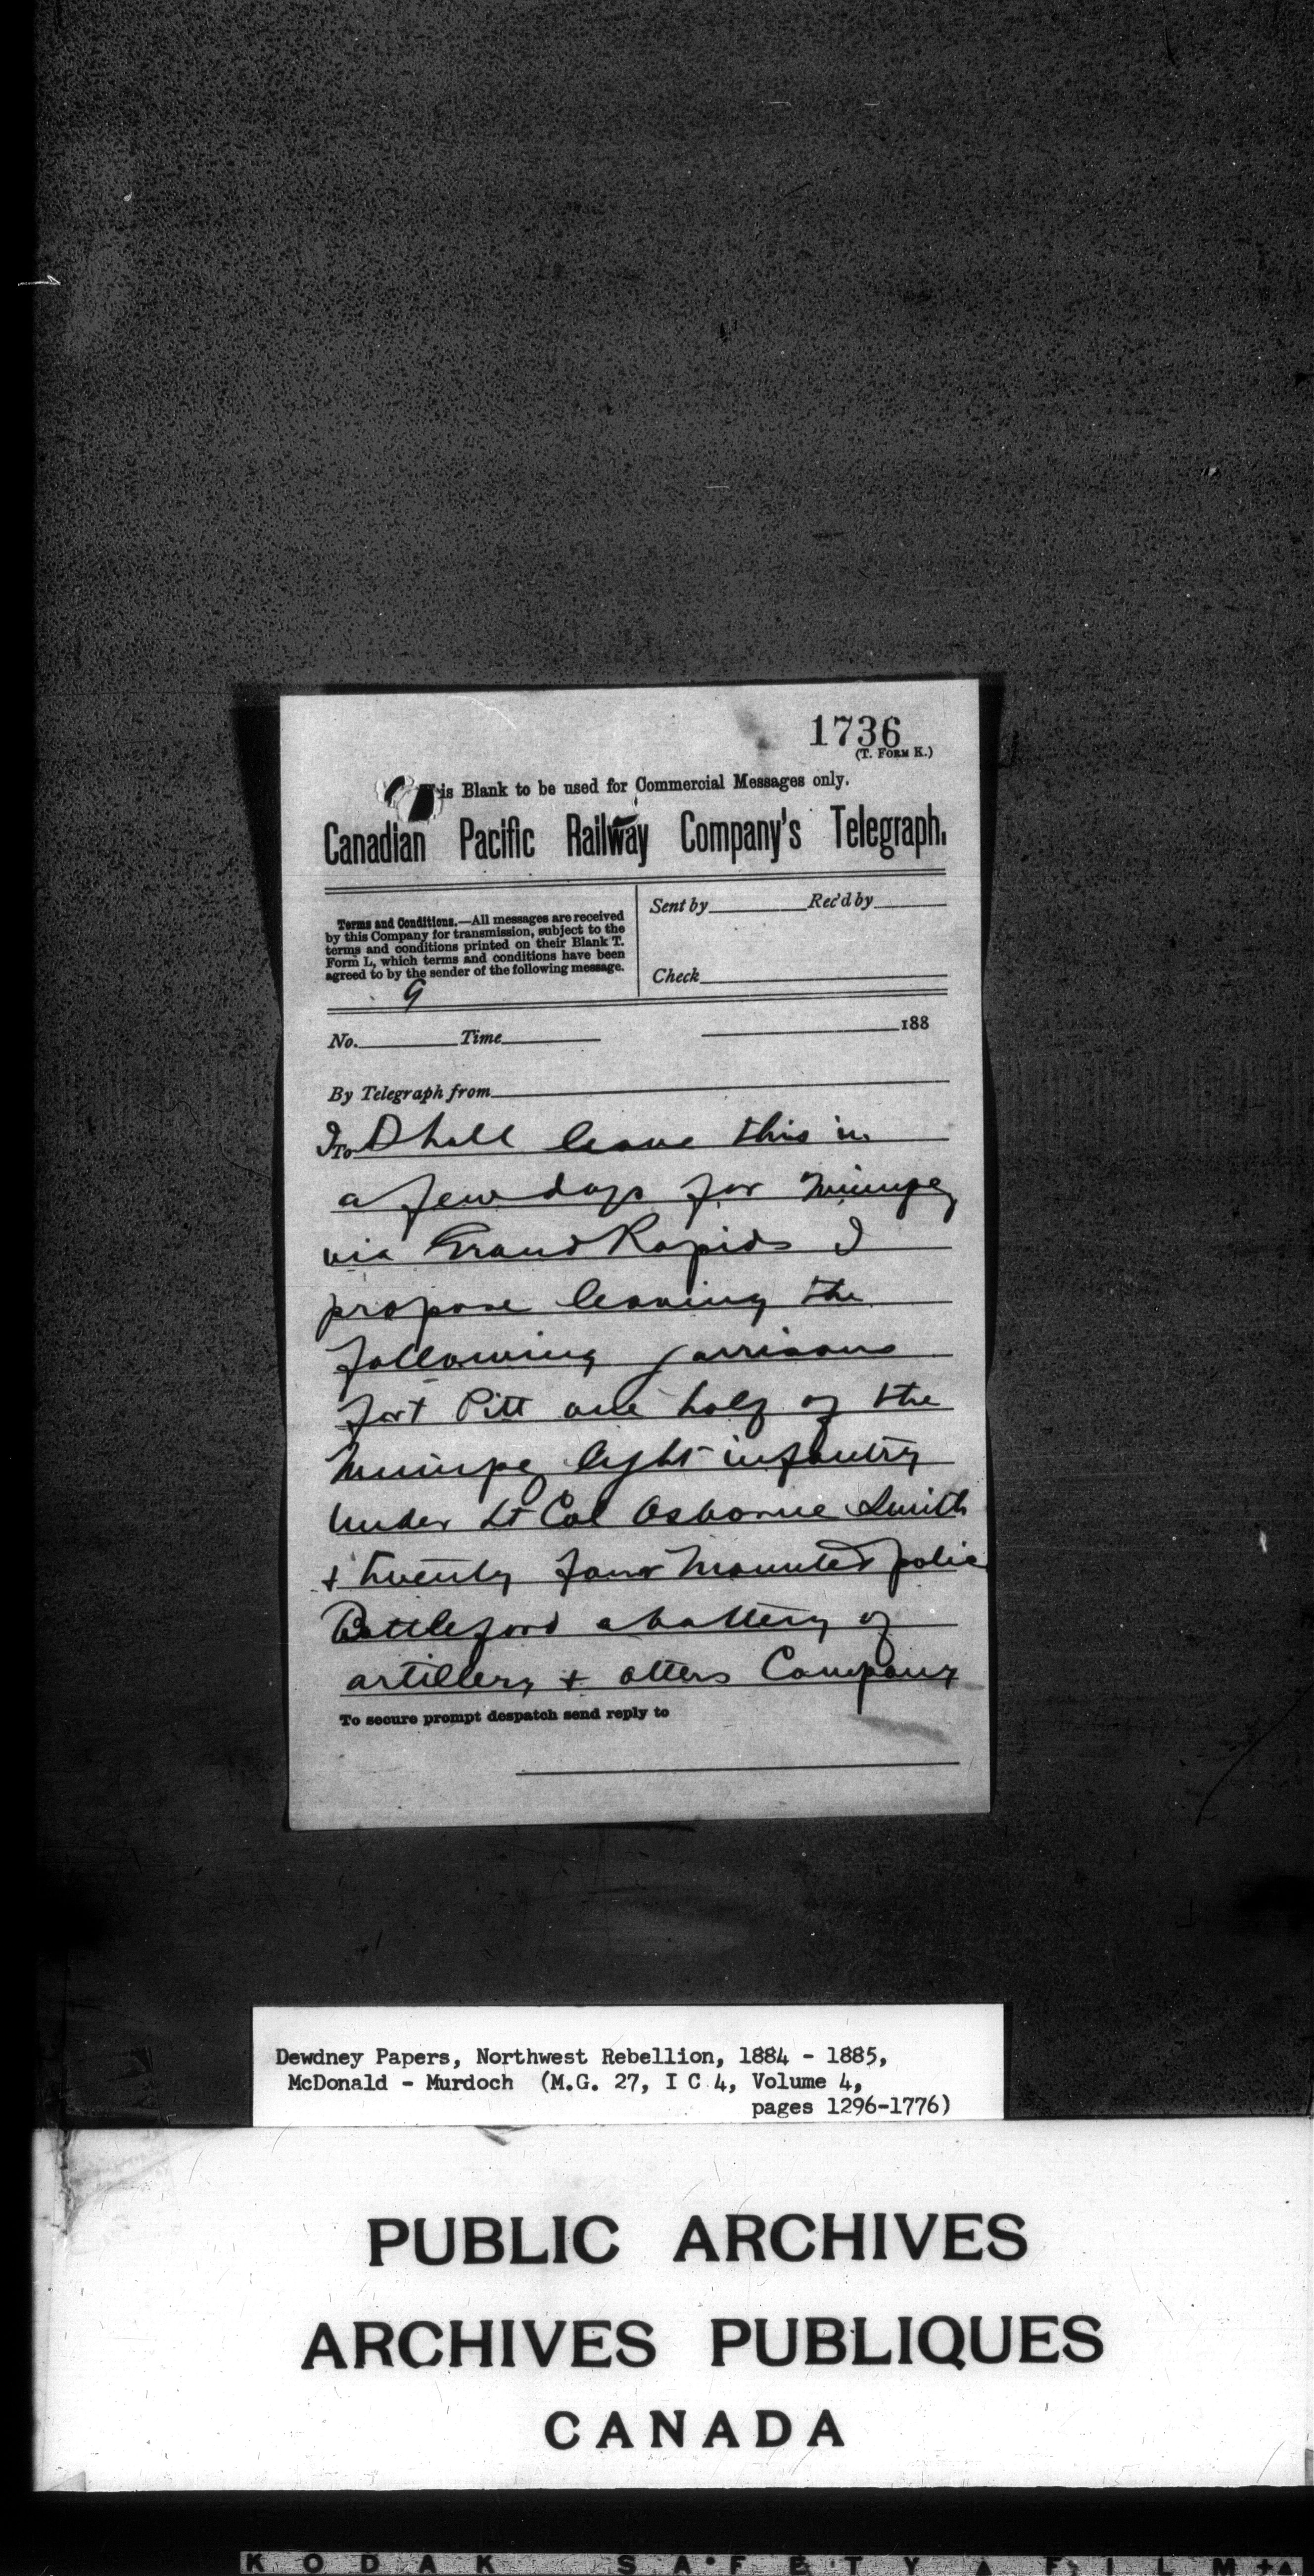 1736
(T. FORM K.)
is Blank to be used for Commercial Messages only.
Canadian Pacific Railway Company's Telegraph.
Terms and Conditions.—All messages are received
by this Company for transmission, subject to the
terms and conditions printed on their Blank T.
Form L, which terms and conditions have been
agreed to by the sender of the following message.
Sent by Rec'd by
Check
9
No. Time 188
By Telegraph from
To
I Shall leave this in
a few days for Winnipeg
via Grand Rapids I
propose leaving the
following garrisons
fort Pitt one half of the
Winnipeg light infantry
under Lt Col Osborne Smith
+ twenty four Mounted police
Battleford a battery of
artillery + otters Company
To secure prompt despatch send reply to
Dewdney Papers, Northwest Rebellion, 1884 - 1885,
McDonald - Murdoch (M.G. 27, I C 4, Volume 4,
pages 1296-1776)
PUBLIC ARCHIVES
ARCHIVES PUBLIQUES
CANADA
KODAK SAFETY FILM